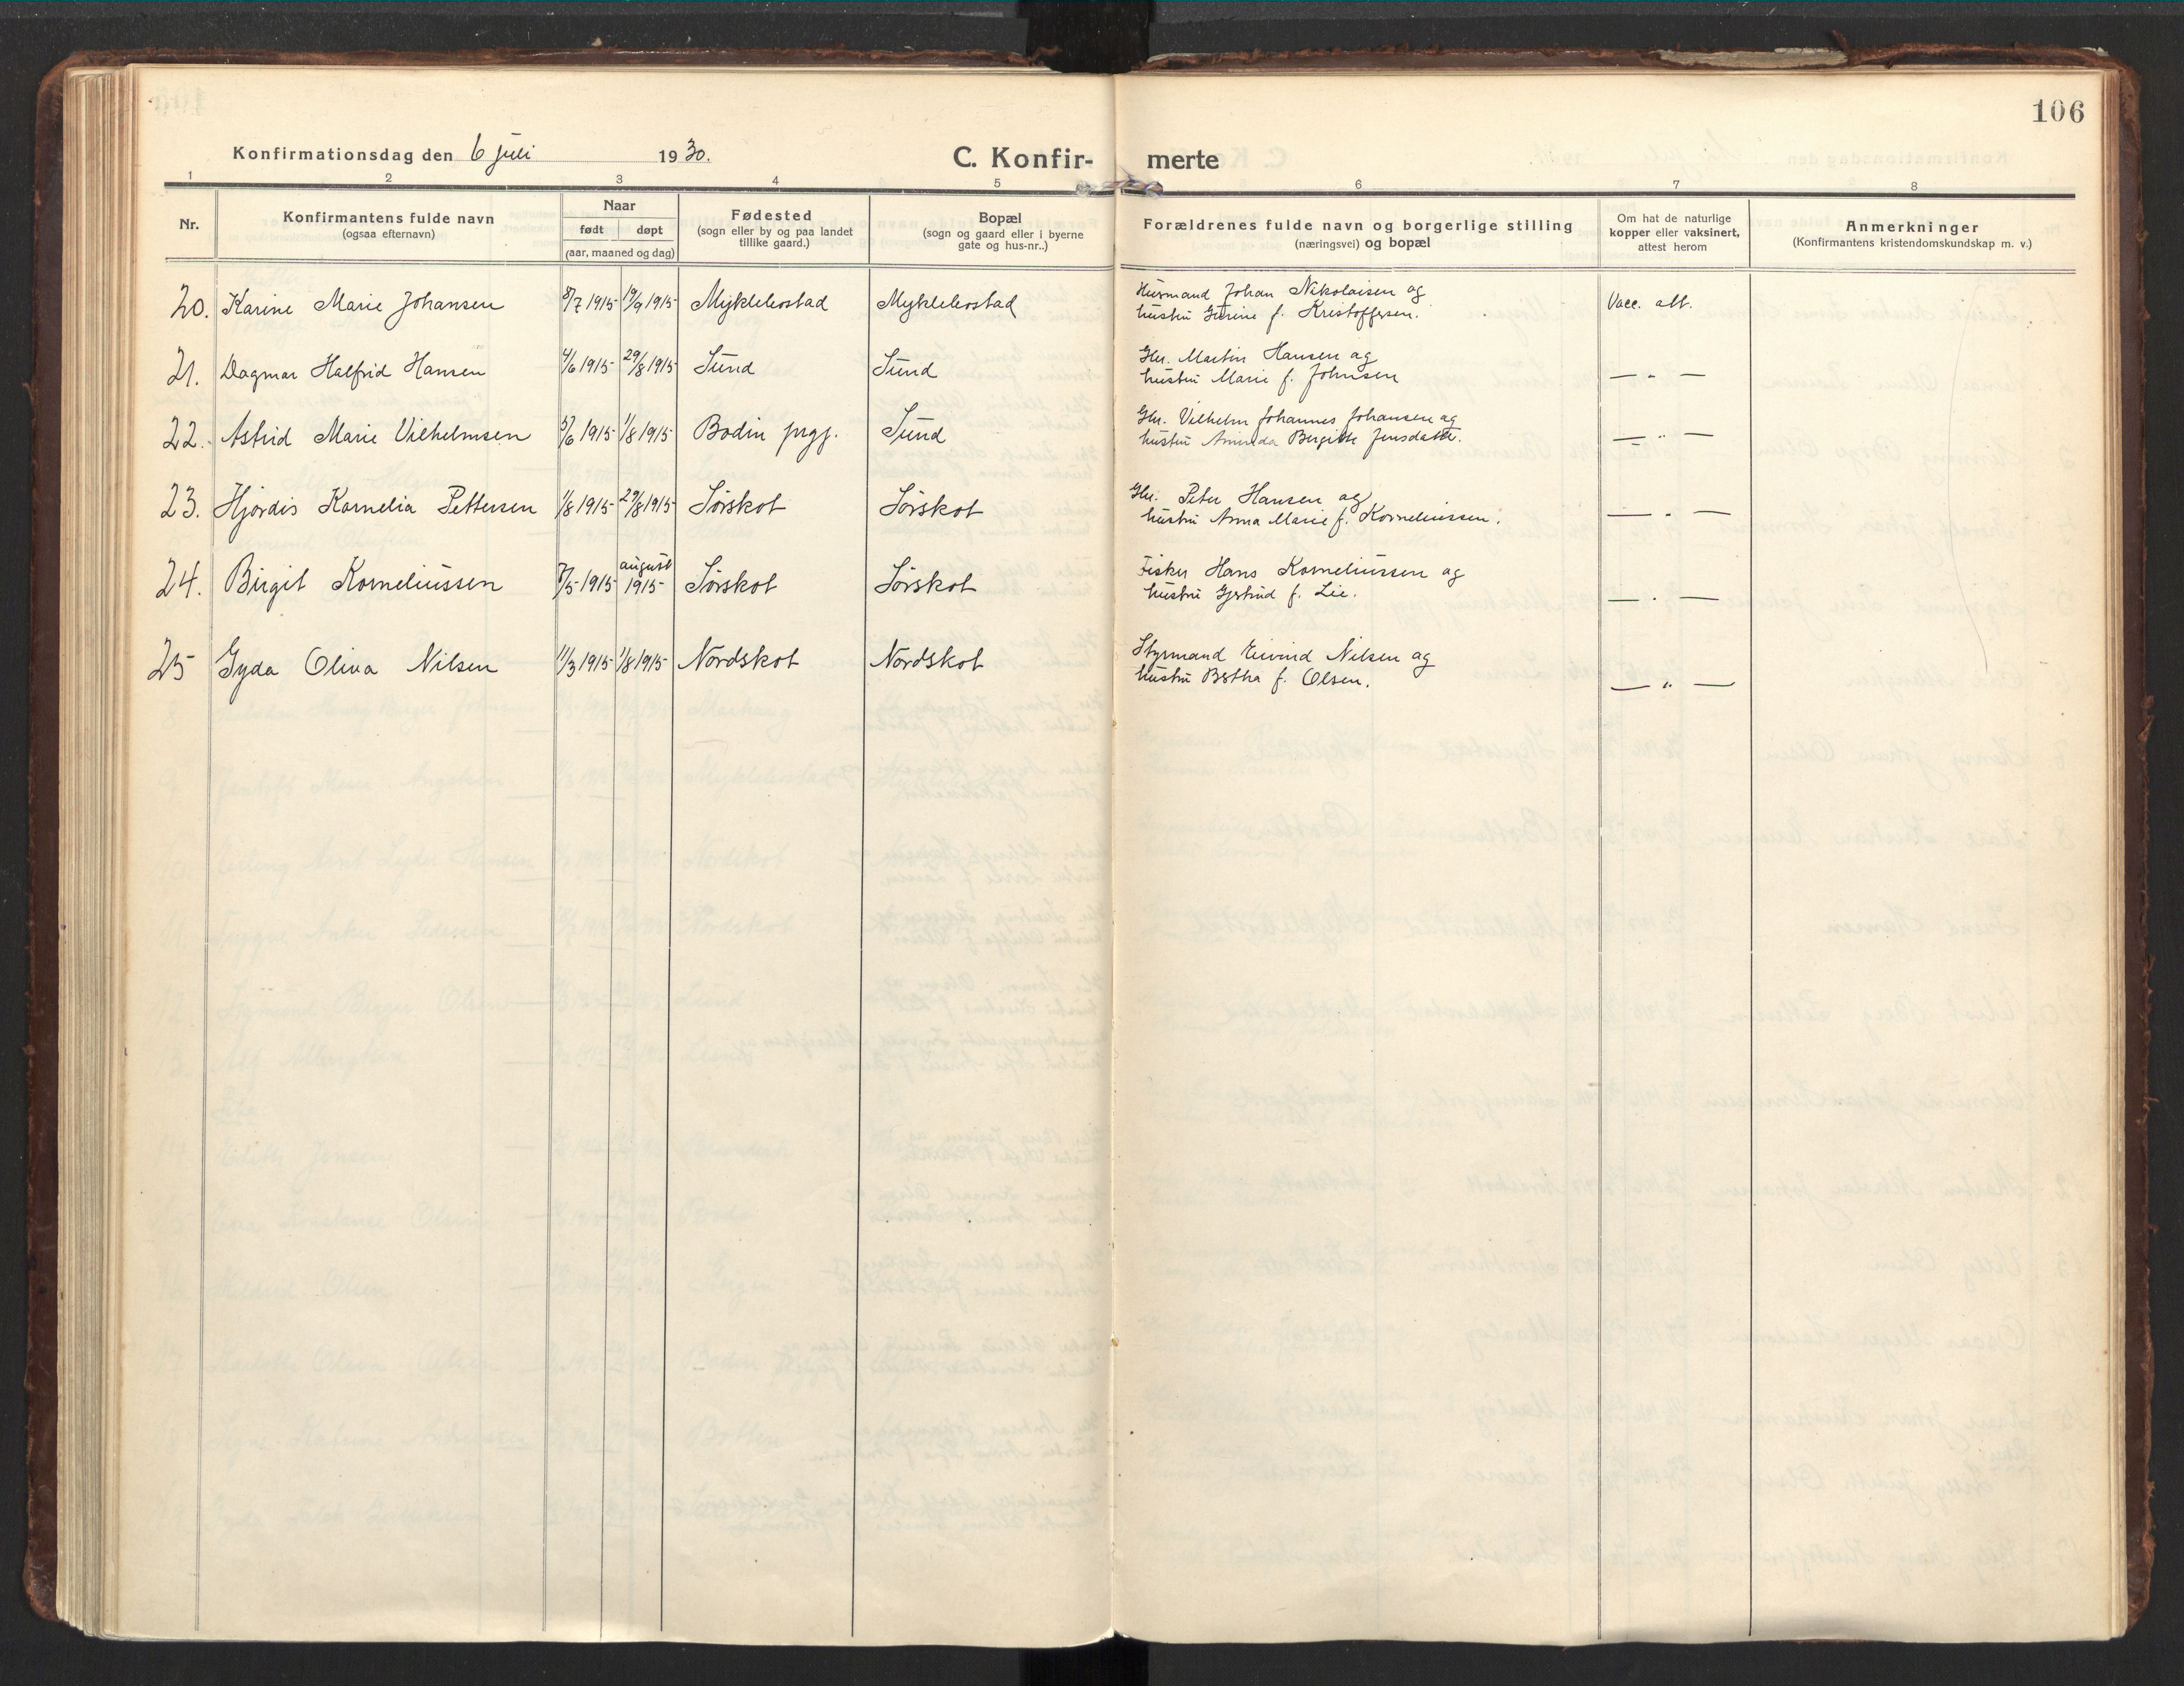 106
Konfirmationsdag den 6 juli 1930. C. Konfir- merte
1 2 3 4 5 6 7 8
Nr. Konfirmantens fulde navn (ogsaa efternavn) Naar født døpt (aar, maaned og dag) Fødested (sogn eller by og paa landet tillike gaard.) Bopæl (sogn og gaard eller i byerne gate og hus-nr..) Forældrenes fulde navn og borgerlige stilling (næringsvei) og bopæl Om hat de naturlige kopper eller vaksinert, attest herom Anmerkninger (Konfirmantens kristendomskundskap m. v.)
20. Karine Marie Johansen 8/7 1915 19/9 1915 Myklebostad Myklebostad Husmand Johan Nikolaisen og
hustru Gurine f. Kristoffersen. Vacc. att.
21. Dagmar Halfrid Hansen 4/6 1915 29/8 1915 Sund Sund Gbr. Martin Hansen og
hustru Marie f. Johnsen — " —
22. Astrid Marie Vilhelmsen 5/6 1915 1/8 1915 Bodin prgj. Sund Gbr. Vilhelm Johannes Johansen og
hustru Aminda Bergitte Jensdatter. — " —
23. Hjørdis Kornelia Pettersen 1/8 1915 29/8 1915 Sørskot Sørskot Gbr. Peter Hansen og
hustru Anna Marie f. Korneliussen. — " —
24. Birgit Korneliussen 7/5 1915 august 1915 Sørskot Sørskot Fisker Hans Korneliussen og
hustru Gjertrud f. Lie. — " —
25 Gyda Oliva Nilsen 11/3 1915 1/8 1915 Nordskot Nordskot Styrmand Eivind Nilsen og
hustru Bertha f. Olsen. — " —